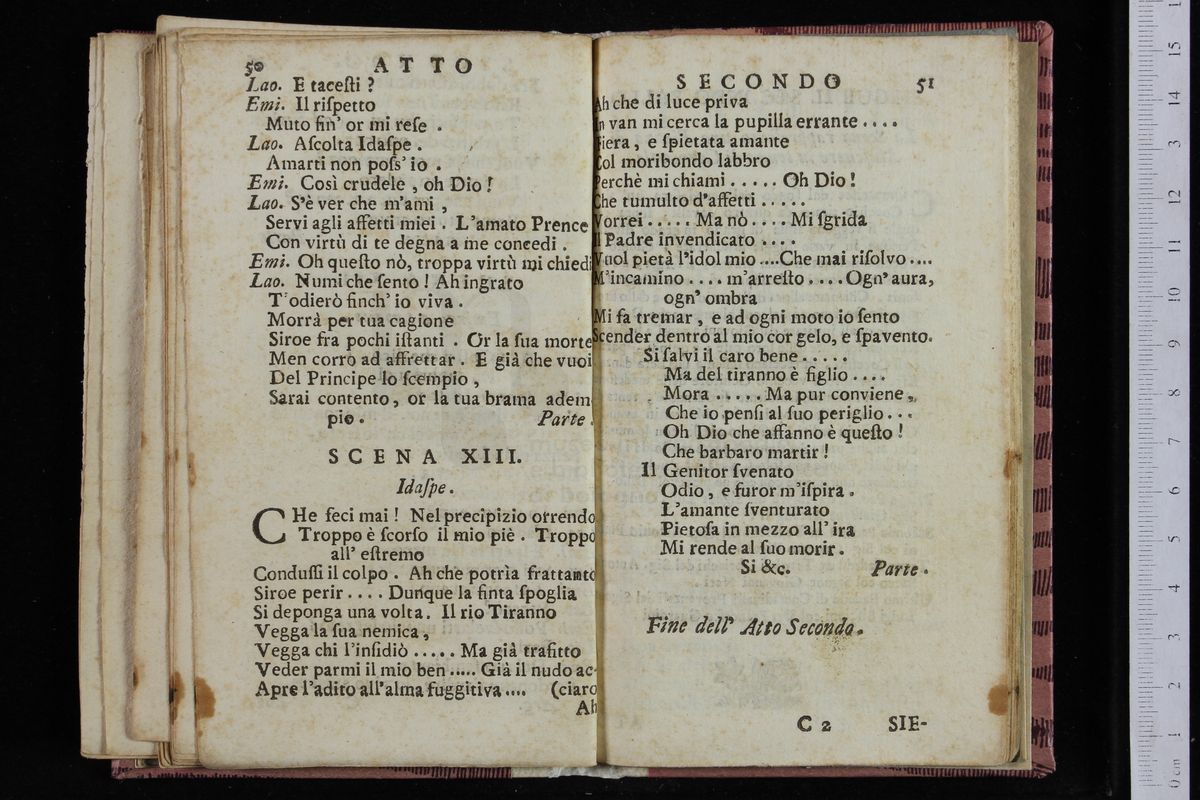 50 ATTO
Lao. E taceſti ?
Emi. Il riſpetto
Muto fin' or mi reſe .
Lao. Aſcolta Idaſpe .
Amarti non poſs' io .
Emi. Così crudele , oh Dio !
Lao. S'è ver che m'ami ,
Servi agli affetti miei . L'amato Prence
Con virtù di te degna a me concedi .
Emi. Oh queſto nò, troppa virtù mi chiedi
Lao. Numi che ſento ! Ah ingrato
T'odierò finch' io viva .
Morrà per tua cagione
Siroe fra pochi iſtanti . Or la ſua morte
Men corro ad affrettar . E già che vuoi
Del Principe lo ſcempio ,
Sarai contento, or la tua brama adem
pio . Parte .
SCENA XIII.
Idaſpe.
CHe feci mai ! Nel precipizio orrendo
Troppo è ſcorſo il mio piè . Troppo
all' eſtremo
Conduſſi il colpo . Ah che potrìa frattanto
Siroe perir .... Dunque la finta ſpoglia
Si deponga una volta. Il rio Tiranno
Vegga la ſua nemica ,
Vegga chi l'inſidiò ..... Ma già trafitto
Veder parmi il mio ben ..... Già il nudo ac-
Apre l'adito all'alma fuggitiva .... (ciaro
Ah
SECONDO 51
Ah che di luce priva
In van mi cerca la pupilla errante ....
Fiera , e ſpietata amante
Col moribondo labbro
Perchè mi chiami ..... Oh Dio !
Che tumulto d'affetti .....
Vorrei ..... Ma nò .... Mi ſgrida
Il Padre invendicato ....
Vuol pietà l'idol mio ....Che mai riſolvo ....
M'incamino .... m'arreſto .... Ogn' aura,
ogn' ombra
Mi fa tremar , e ad ogni moto io ſento
Scender dentro al mio cor gelo, e ſpavento.
Si ſalvi il caro bene .....
Ma del tiranno è figlio ....
Mora ..... Ma pur conviene ,
Che io penſi al ſuo periglio ...
Oh Dio che affanno è queſto !
Che barbaro martir !
Il Genitor ſvenato
Odio , e furor m'iſpira .
L'amante ſventurato
Pietoſa in mezzo all' ira
Mi rende al ſuo morir .
Si &c. Parte .
Fine dell' Atto Secondo.
C 2 SIE-
0 cm 1 2 3 4 5 6 7 8 9 10 11 12 13 14 15